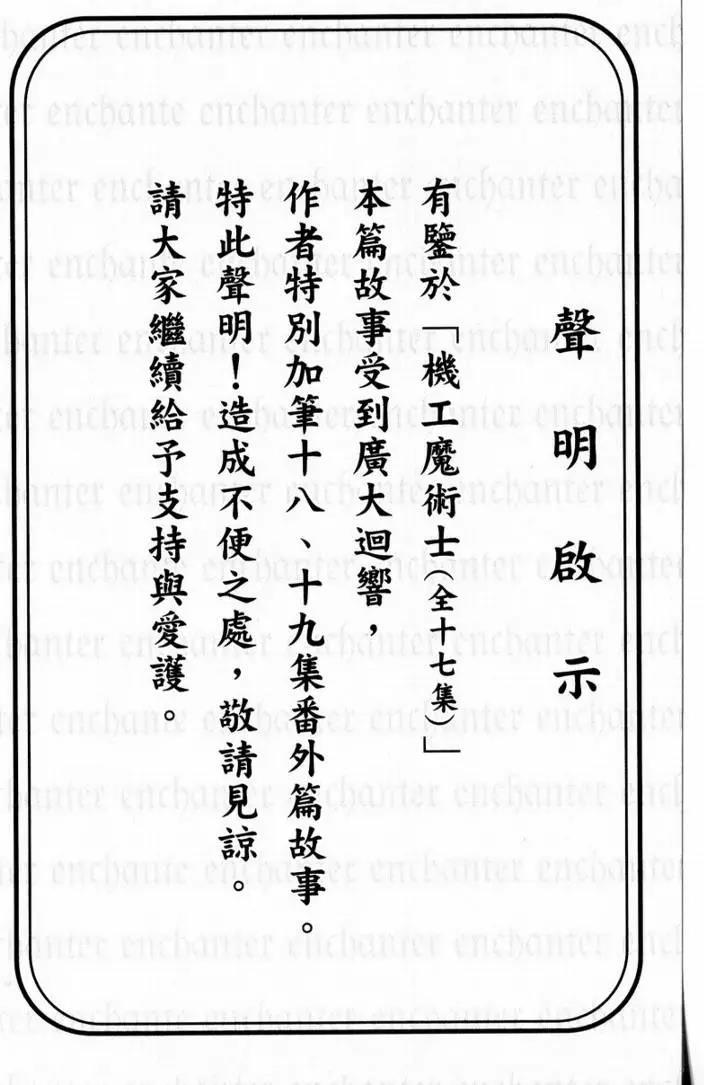 聲明啟示
有鑒於「機工魔術士(全十七集)」
本篇故事受到廣大迴響,
作者特別加筆十八、十九集番外篇故事。
特此聲明!造成不便之處,敬請見諒。
請大家繼續給予支持與愛護。
enchanter enchanter enchanter enchanter